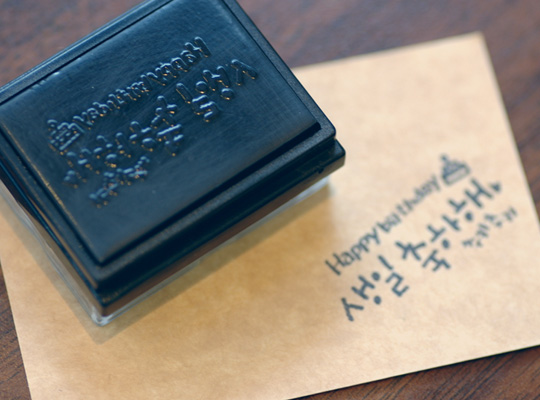 Happy birthday
생일 축하해